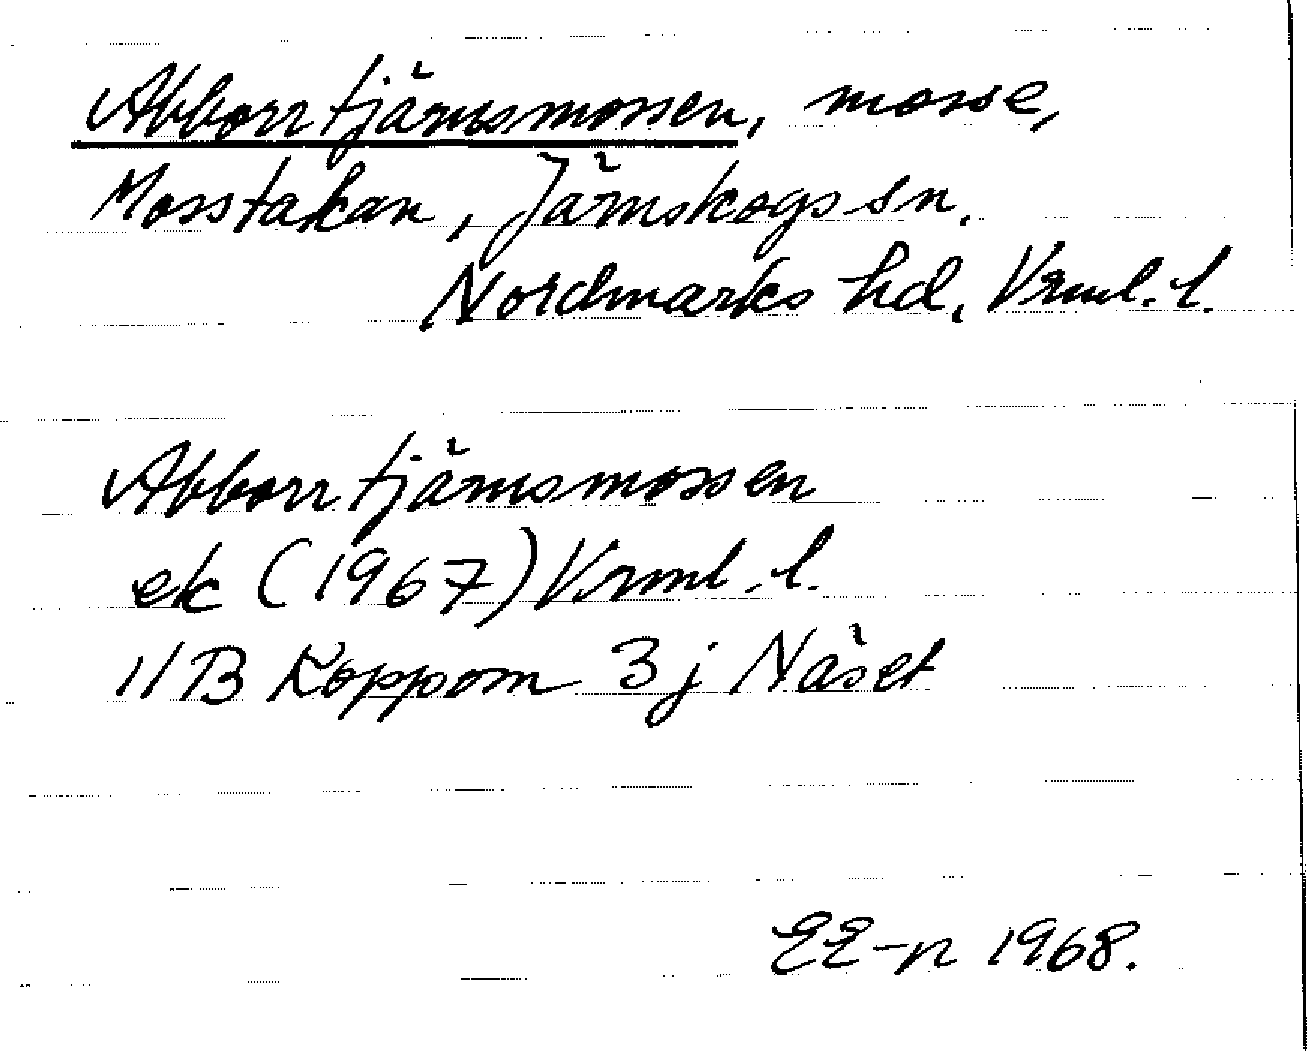 Abborrtjärnsmossen, mosse,
Mosstakan, Järnskogs sn.
Nordmarks hd, Vrml. l.
Abborrtjärnsmossen
ek (1967) Vrml. l.
11B Koppom 3j Näset
EE-n 1968.